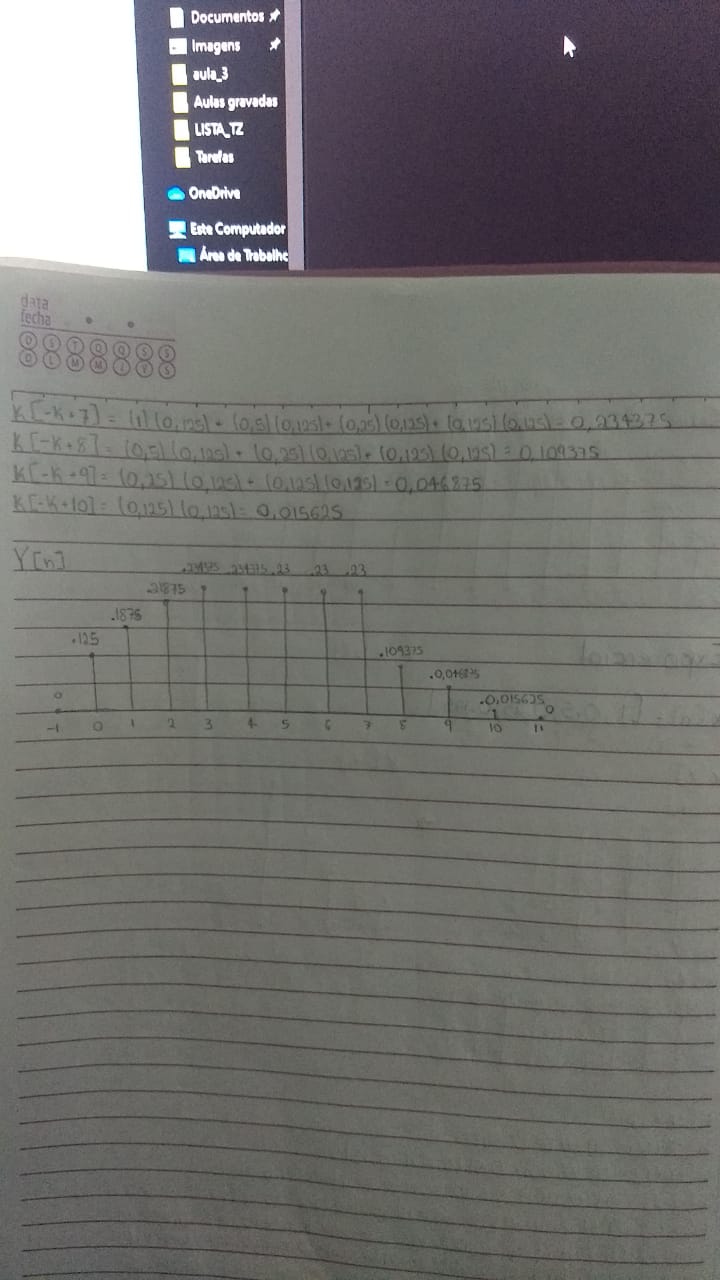 Documentos
Imagens
aula_3
Aulas gravadas
LISTA_TZ
Tarefas
OneDrive
Este Computador
Área de Trabalhc
data
fecha
D S T Q Q S S
D L M M J V S
K[-K+7] = (1)(0,125) + (0,5)(0,125)+ (0,25)(0,125)+ (0,125)(0,125)= 0,234375
K[-K+8]= (0,5)(0,125)+ (0,25)(0,125)+ (0,125)(0,125)= 0,109375
K[-K+9]= (0,25)(0,125)+ (0,125)(0,125)= 0,046875
K[-K+10]= (0,125)(0,125)= 0,015625
Y[n]
.234375 .234375 .23 .23 .23
.21875
.1875
.125
.109375
.0,046875
0 .0,015625 0
-1 0 1 2 3 4 5 6 7 8 9 10 11